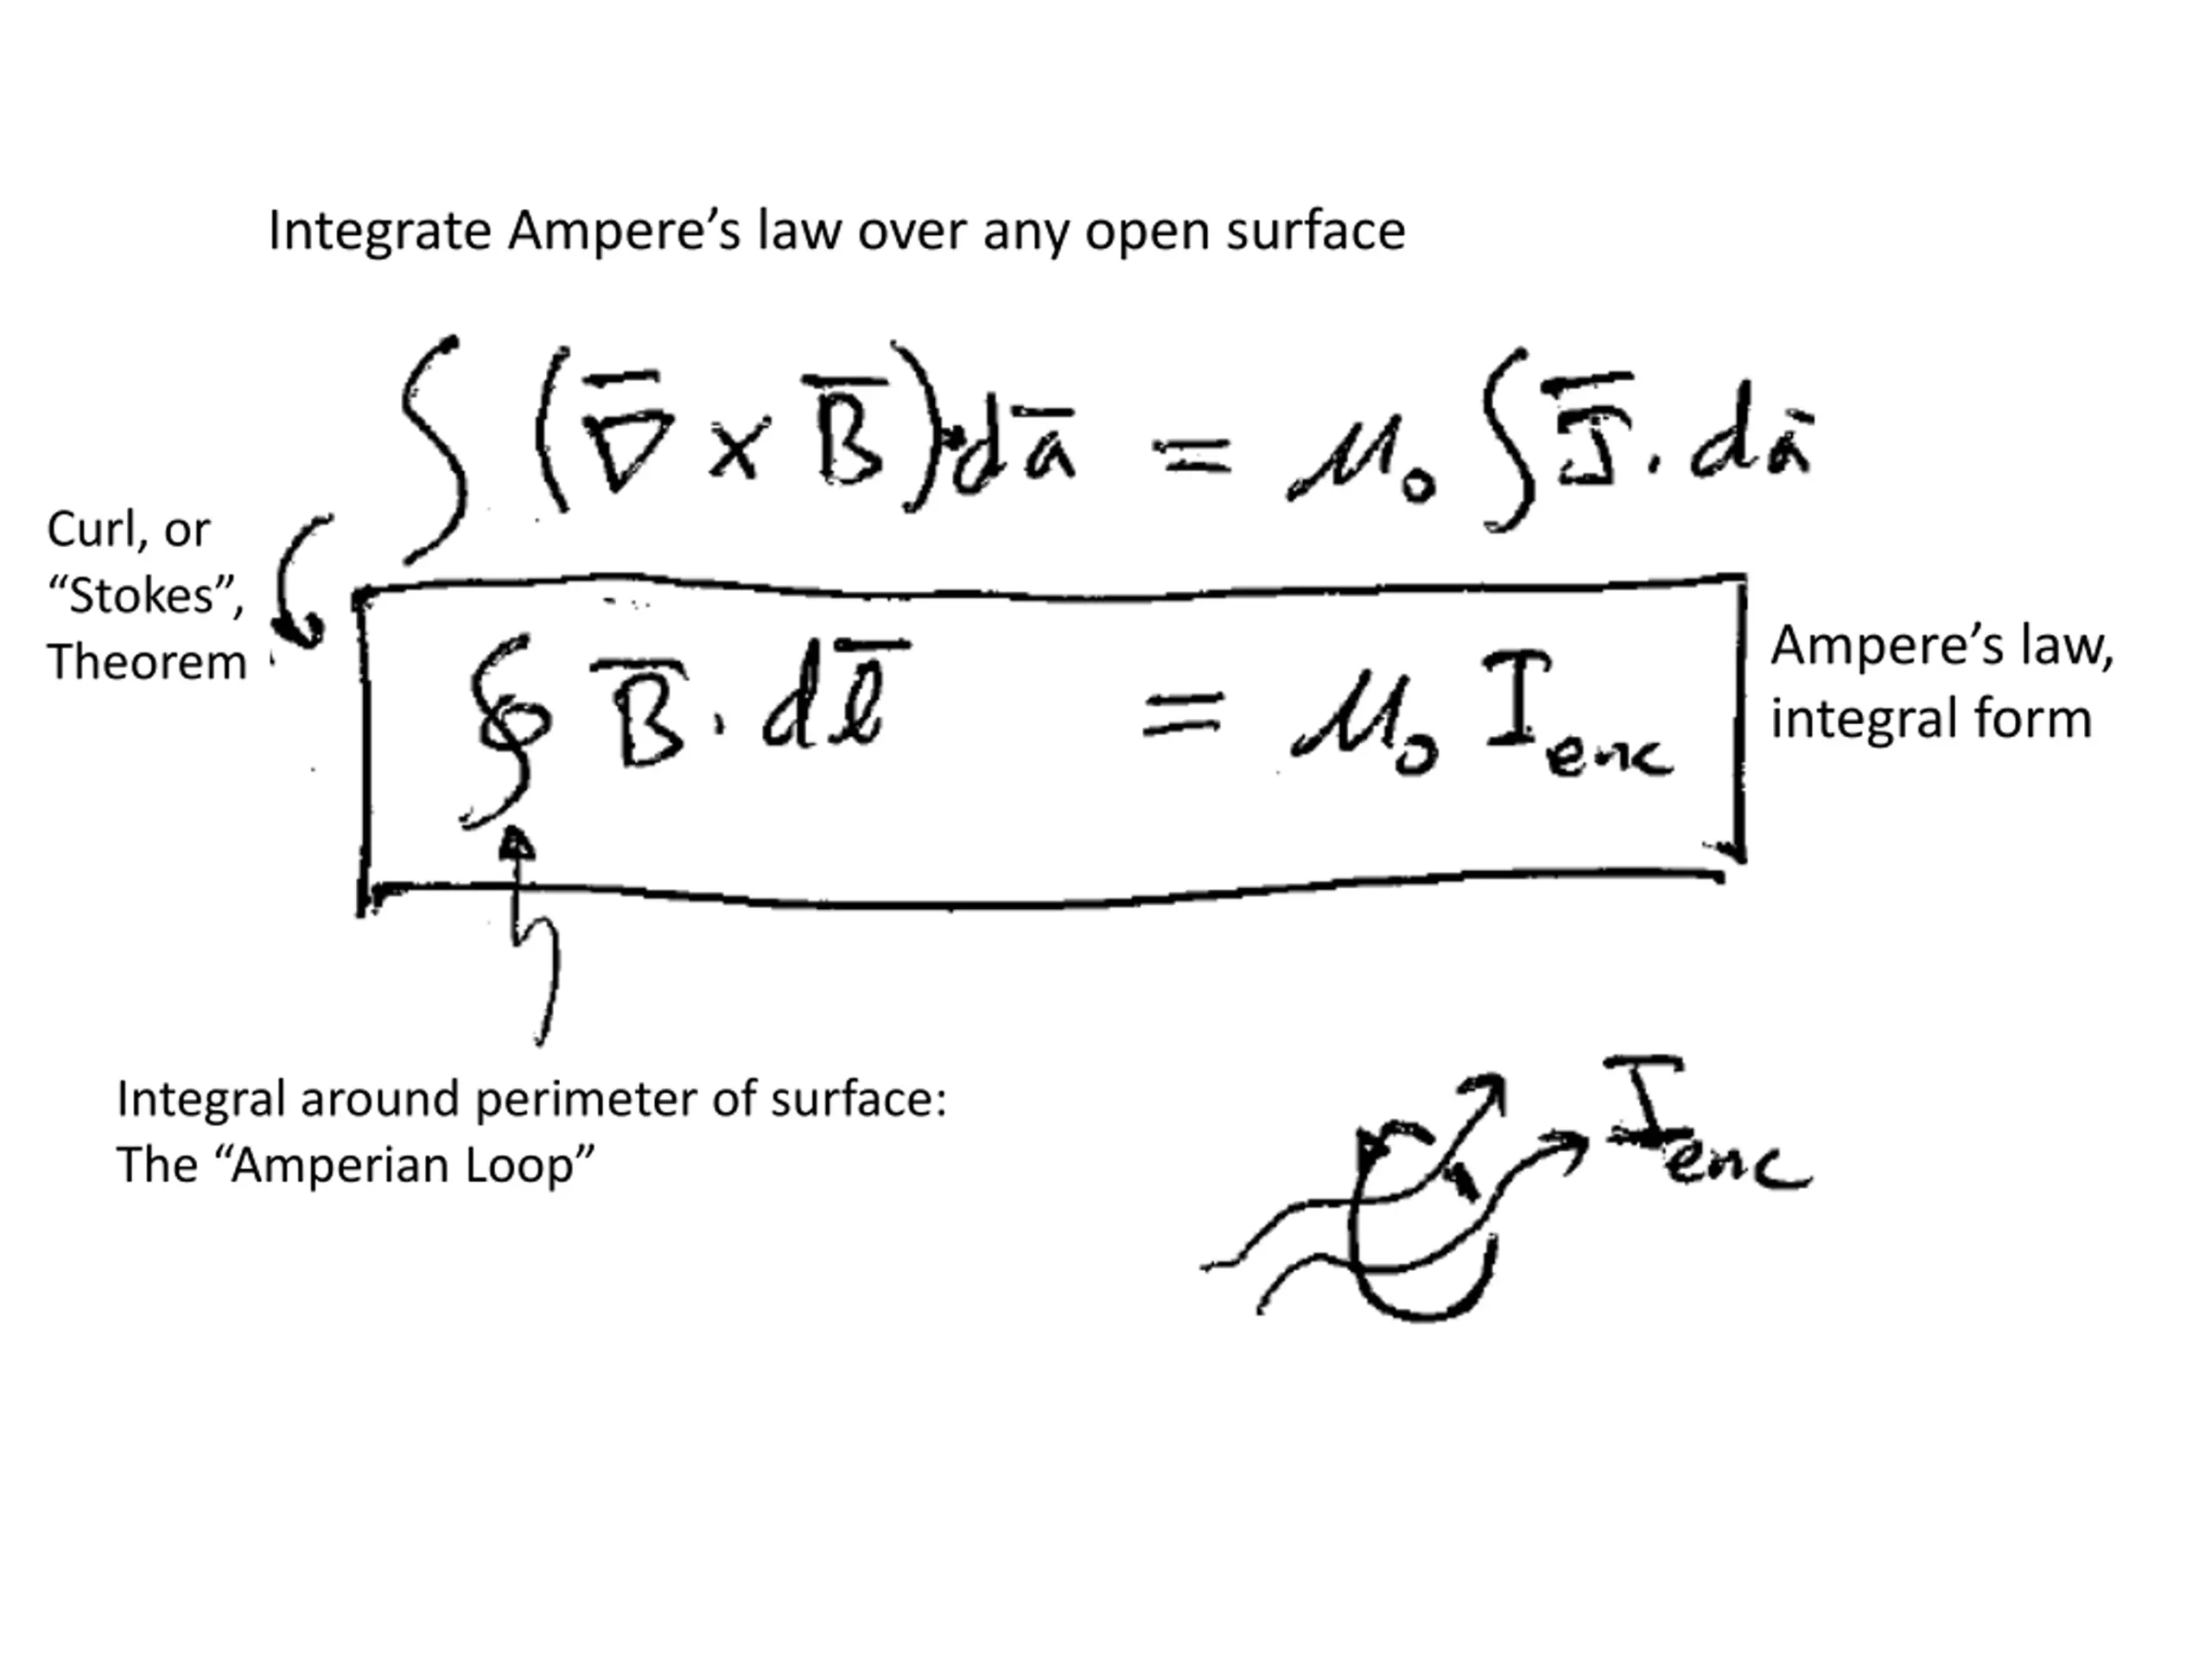 Integrate Ampere’s law over any open surface
∫ (∇̅ × B̅)·da̅ = μ₀ ∫ J̅ · da̅
Curl, or
“Stokes”,
Theorem
∮ B̅ · dl̅ = μ₀ I enc
Ampere’s law,
integral form
Integral around perimeter of surface:
The “Amperian Loop”
I enc